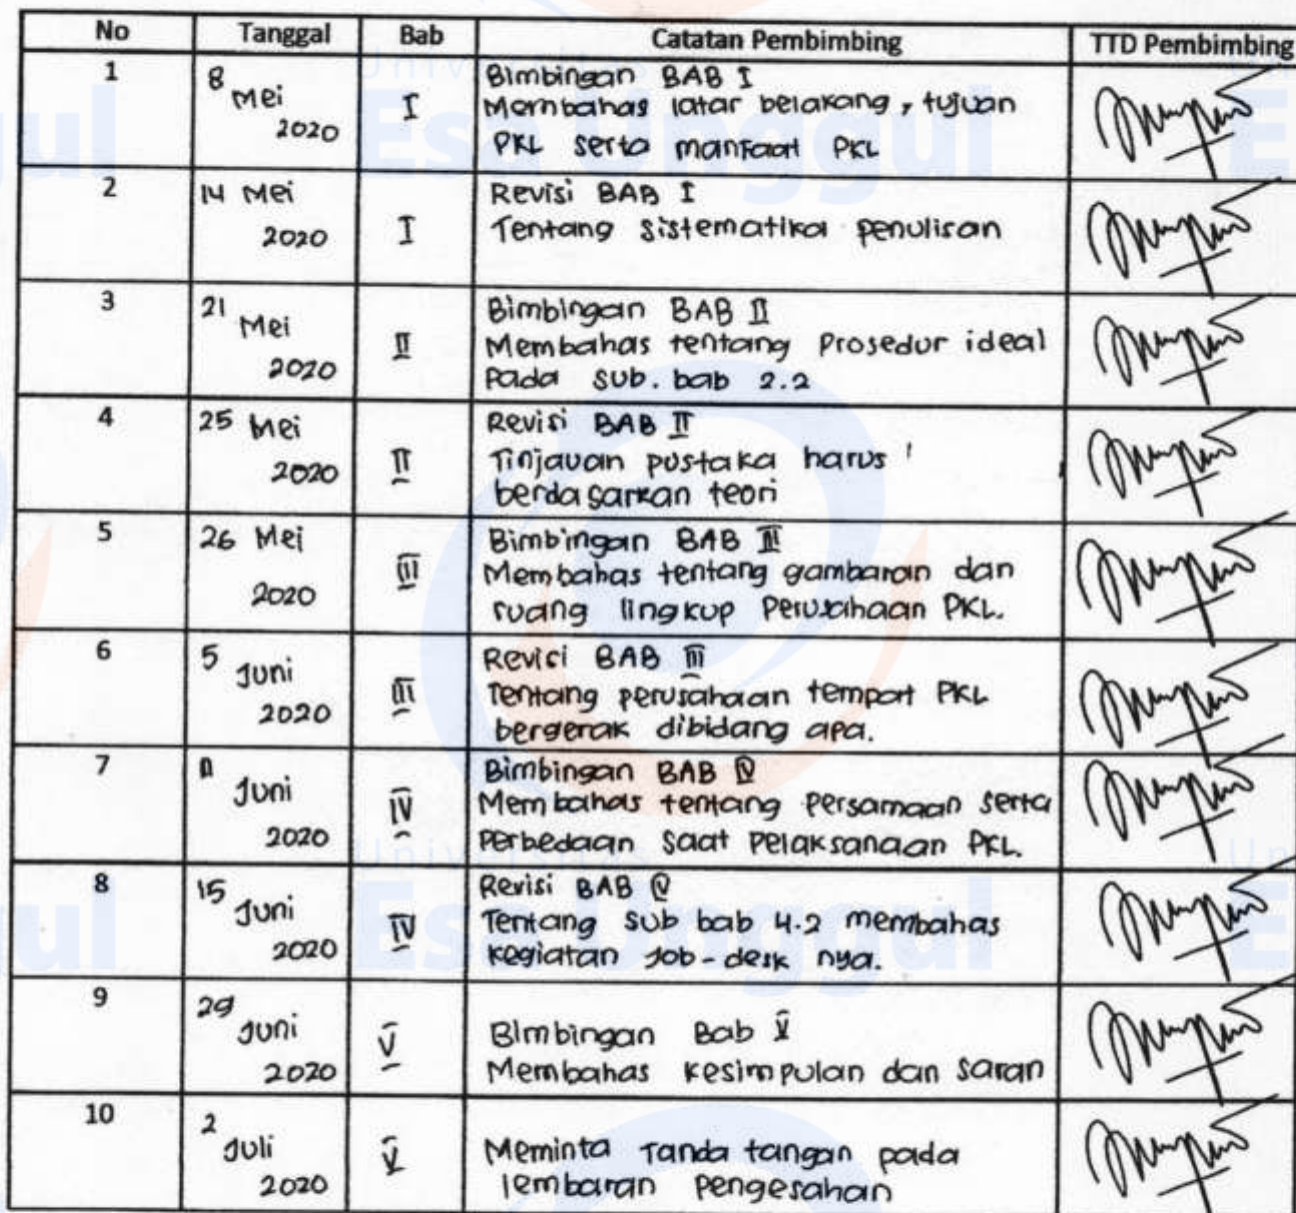 No Tanggal Bab Catatan Pembimbing TTD Pembimbing
1 8 Mei 2020 I Bimbingan BAB I
Membahas latar belakang, tujuan
PKL serta manfaat PKL
2 14 Mei 2020 I Revisi BAB I
Tentang sistematika penulisan
3 21 Mei 2020 II Bimbingan BAB II
Membahas tentang Prosedur ideal
Pada sub. bab 2.2
4 25 Mei 2020 II Revisi BAB II
Tinjauan pustaka harus
berdasarkan teori
5 26 Mei 2020 III Bimbingan BAB III
Membahas tentang gambaran dan
ruang lingkup Perusahaan PKL.
6 5 Juni 2020 III Revisi BAB III
Tentang perusahaan tempat PKL
bergerak dibidang apa.
7 11 Juni 2020 IV Bimbingan BAB IV
Membahas tentang Persamaan serta
Perbedaan saat Pelaksanaan PKL.
8 15 Juni 2020 IV Revisi BAB IV
Tentang sub bab 4.2 membahas
kegiatan Job-desk nya.
9 29 Juni 2020 V Bimbingan Bab V
Membahas kesimpulan dan saran
10 2 Juli 2020 V Meminta Tanda tangan pada
lembaran pengesahan
Universitas
Esa Unggul
Universitas
Esa Unggul